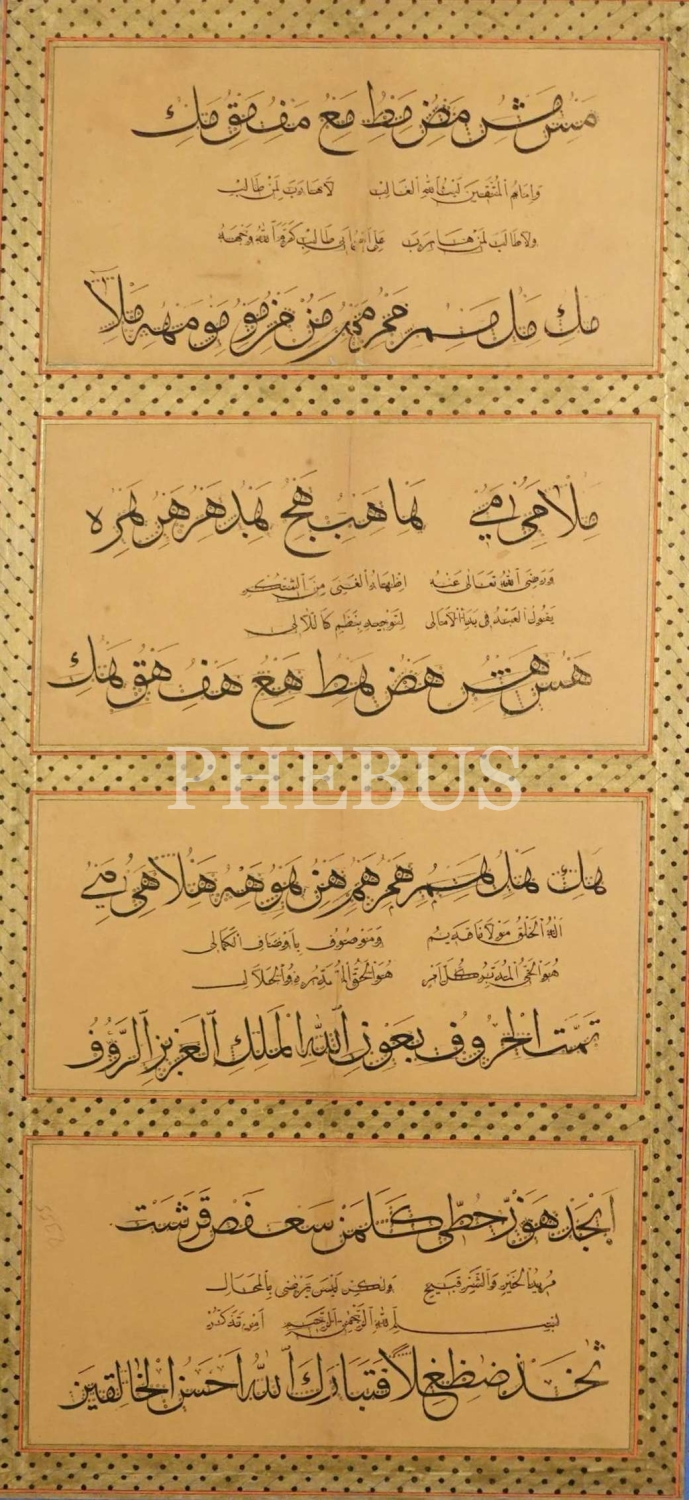 مس مش مص مط مع مف مق مك
وامام المتقين ليث الله الغالب لاهارب لمن طالب
ولا طالب لمن هارب علي ابن ابي طالب كرم الله وجهه
مك مل مم مخر من مز مو مو مهه ملا
ملا مي مي ها هب هج هد هر هن همره
ورضي الله تعالى عنه
يقول العبد في بدء الامالي لتوحيد بنظم كاللآلي
هس هش هص هط هع هف هق هك
هك هل هم هم هن هو هه هلا هي مي
اله الخلق مولانا قديم وموصوف باوصاف الكمالي
هو الحي المدبر كل امر هو الحق المقدر ذو الجلالي
تمت الحروف بعون الله الملك العزيز الرؤف
PHEBUS
ابجد هوز حطي كلمن سعفص قرشت
مريد الخير والشر قبيح ولكن ليس يرضى بالمحال
بسم الله الرحمن الرحيم
ثخذ ضظغلا فتبارك الله احسن الخالقين